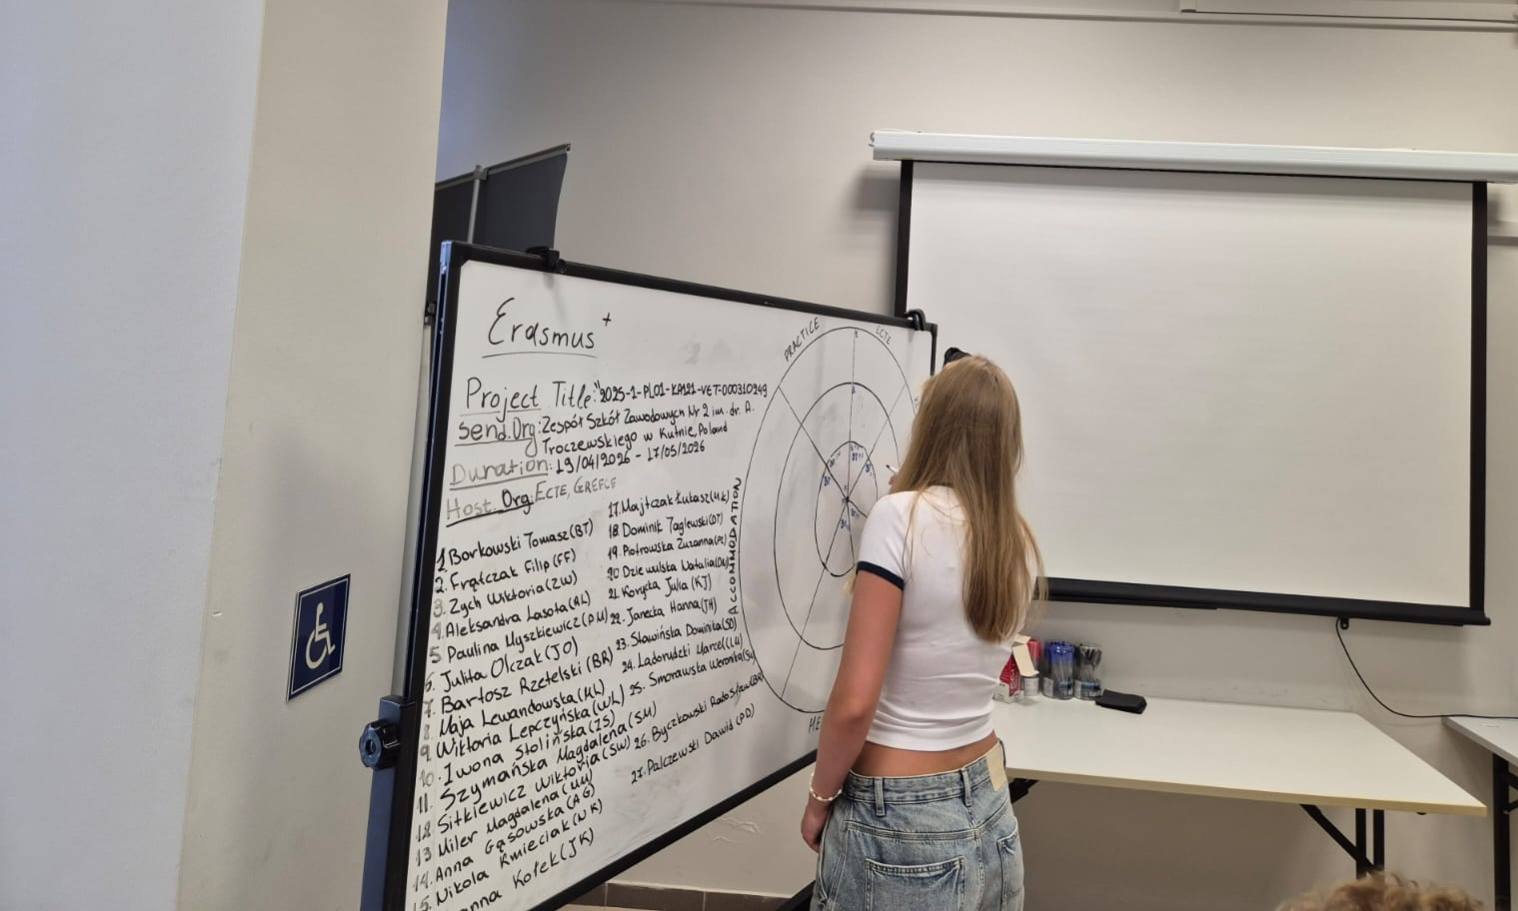 Erasmus+
Project Title: "2025-1-PL01-KA121-VET-000310249
Send. Org: Zespół Szkół Zawodowych Nr 2 im. dr. A.
Troczewskiego w Kutnie, Poland
Duration: 19/04/2026 - 17/05/2026
Host. Org: ECTE, GREECE
1. Borkowski Tomasz (BT)
2. Frątczak Filip (FF)
3. Zych Wiktoria (ZW)
4. Aleksandra Lasota (AL)
5. Paulina Myszkiewicz (PM)
6. Julita Olczak (JO)
7. Bartosz Rzetelski (BR)
8. Maja Lewandowska (ML)
9. Wiktoria Lepczyńska (WL)
10. Iwona Stolińska (IS)
11. Szymańska Magdalena (SM)
12. Sitkiewicz Wiktoria (SW)
13. Miler Magdalena (MM)
14. Anna Gąsowska (AG)
15. Nikola Kmieciak (NK)
Kołek (JK)
17. Majtczak Łukasz (MŁ)
18. Dominik Taglewski (DT)
19. Piotrowska Zuzanna
20. Dziewulska Natalia
21. Korycka Julia (KJ)
22. Janecka Hanna (JH)
23. Sławińska Dominika (SD)
24. Marcel (LM)
25. Smorawska Weronika
26. Byczkowski Radosław (BR)
27. Palczewski Dawid (PD)
PRACTICE
ECTE
ACCOMMODATION